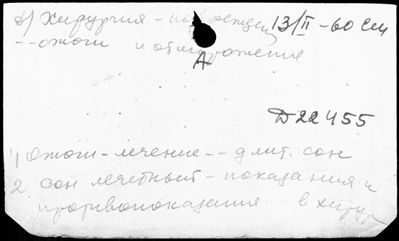 8) Хирургия - поврежден 13/II - 60 см
-- ожоги и отморожения
А
Д 22455
1 Ожоги - лечение -- длит. сон
2. сон лечебный - показания и
противопоказания -- в хирур